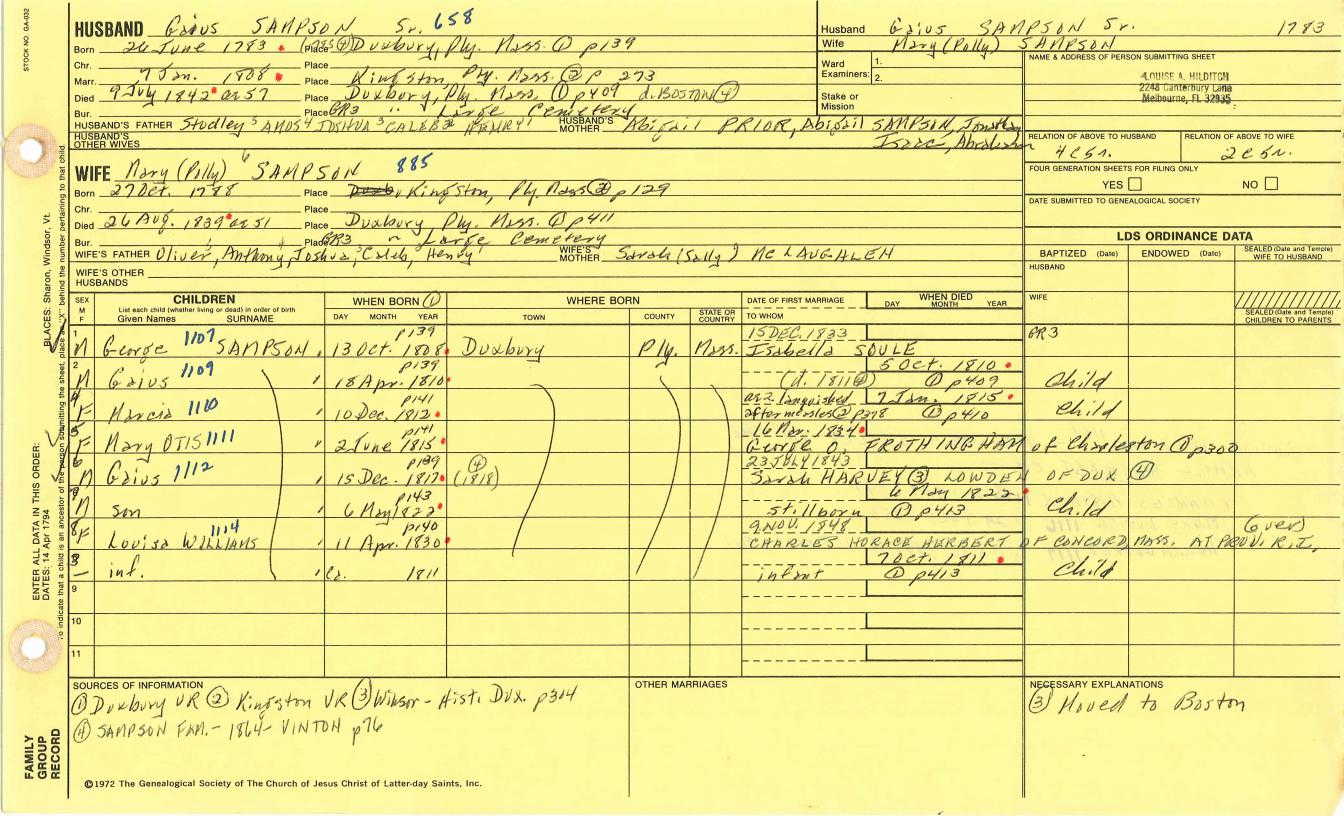 STOCK NO. GA-032
HUSBAND Gaius SAMPSON Sr. 658
Born 26 June 1783 (1785④) Place Duxbury, Ply. Mass. ① p139
Chr. Place
Marr. 7 Jan. 1808 Place Kingston, Ply. Mass. ② p 273
Died 9 July 1842 ae 57 Place Duxbury, Ply. Mass, ① p409 d. BOSTON ④
Bur. Place GR3 " Large Cemetery
HUSBAND'S FATHER Studley⁵ AMOS⁴ JOSHUA³ CALEB² HENRY¹ HUSBAND'S MOTHER Abigail PRIOR, Abigail SAMPSON, Jonathan
HUSBAND'S OTHER WIVES Isaac, Abraham
WIFE Mary (Polly)⁶ SAMPSON 885
Born 27 Oct. 1788 Place Duxb, Kingston, Ply. Mass ② p129
Chr. Place
Died 26 Aug. 1839 ae 51 Place Duxbury Ply. Mass. ① p411
Bur. Place GR3 " Large Cemetery
WIFE'S FATHER Oliver, Anthony, Joshua, Caleb, Henry WIFE'S MOTHER Sarah (Sally) McLAUGHLEN
WIFE'S OTHER HUSBANDS
Husband Gaius SAMPSON Sr. 1783
Wife Mary (Polly) SAMPSON
Ward Examiners: 1.
2.
Stake or Mission
NAME & ADDRESS OF PERSON SUBMITTING SHEET
LOUISE A. HILDITCH
2248 Canterbury Lane
Melbourne, FL 32935
RELATION OF ABOVE TO HUSBAND RELATION OF ABOVE TO WIFE
4c5r. 2c5r.
FOUR GENERATION SHEETS FOR FILING ONLY
YES NO
DATE SUBMITTED TO GENEALOGICAL SOCIETY
LDS ORDINANCE DATA
BAPTIZED (Date) ENDOWED (Date) SEALED (Date and Temple) WIFE TO HUSBAND
HUSBAND
WIFE
SEALED (Date and Temple) CHILDREN TO PARENTS
SEX M F CHILDREN List each child (whether living or dead) in order of birth Given Names SURNAME WHEN BORN ① DAY MONTH YEAR WHERE BORN TOWN COUNTY STATE OR COUNTRY DATE OF FIRST MARRIAGE TO WHOM WHEN DIED DAY MONTH YEAR
1 p139 15 DEC. 1833 GR3
M George 1107 SAMPSON 13 Oct. 1808 Duxbury Ply. Mass. Isabella SOULE
2 p139 5 Oct. 1810
M Gaius 1109 " 18 Apr. 1810 (d. 1811④) ① p409 Child
4 p141 ae 2. languished 7 Jan. 1815
F Marcia 1110 " 10 Dec. 1812 after measles ② p378 ① p410 Child
5 p141 16 Mar. 1834
F Mary OTIS 1111 " 2 June 1815 George O. FROTHINGHAM of Charleston ① p300
6 p139 23 JULY 1843
M Gaius 1112 " 15 Dec. 1817 ④ (1818) Sarah HARVEY ③ LOWDEN OF DUX ④
7 p143 6 May 1822
M son " 6 May 1822 stillborn ① p413 Child
8 p140 9 NOV. 1848 (over)
F Louisa WILLIAMS 1114 " 11 Apr. 1830 CHARLES HORACE HERBERT OF CONCORD, MASS. AT PROV. R.I.
3 7 Oct. 1811
— inf. " Ca. 1811 infant ① p413 Child
9
10
11
SOURCES OF INFORMATION
① Duxbury VR ② Kingston VR ③ Winsor - Hist. Dux. p304
④ SAMPSON FAM. - 1864 - VINTON p76
OTHER MARRIAGES
NECESSARY EXPLANATIONS
③ Moved to Boston
©1972 The Genealogical Society of The Church of Jesus Christ of Latter-day Saints, Inc.
FAMILY GROUP RECORD
ENTER ALL DATA IN THIS ORDER:
DATES: 14 Apr 1794
PLACES: Sharon, Windsor, Vt.
To indicate that a child is an ancestor of the person submitting the sheet, place an "X" behind the number pertaining to that child.